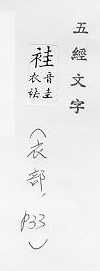 五經文字
袿
音圭
衣袪
(衣部, P33)